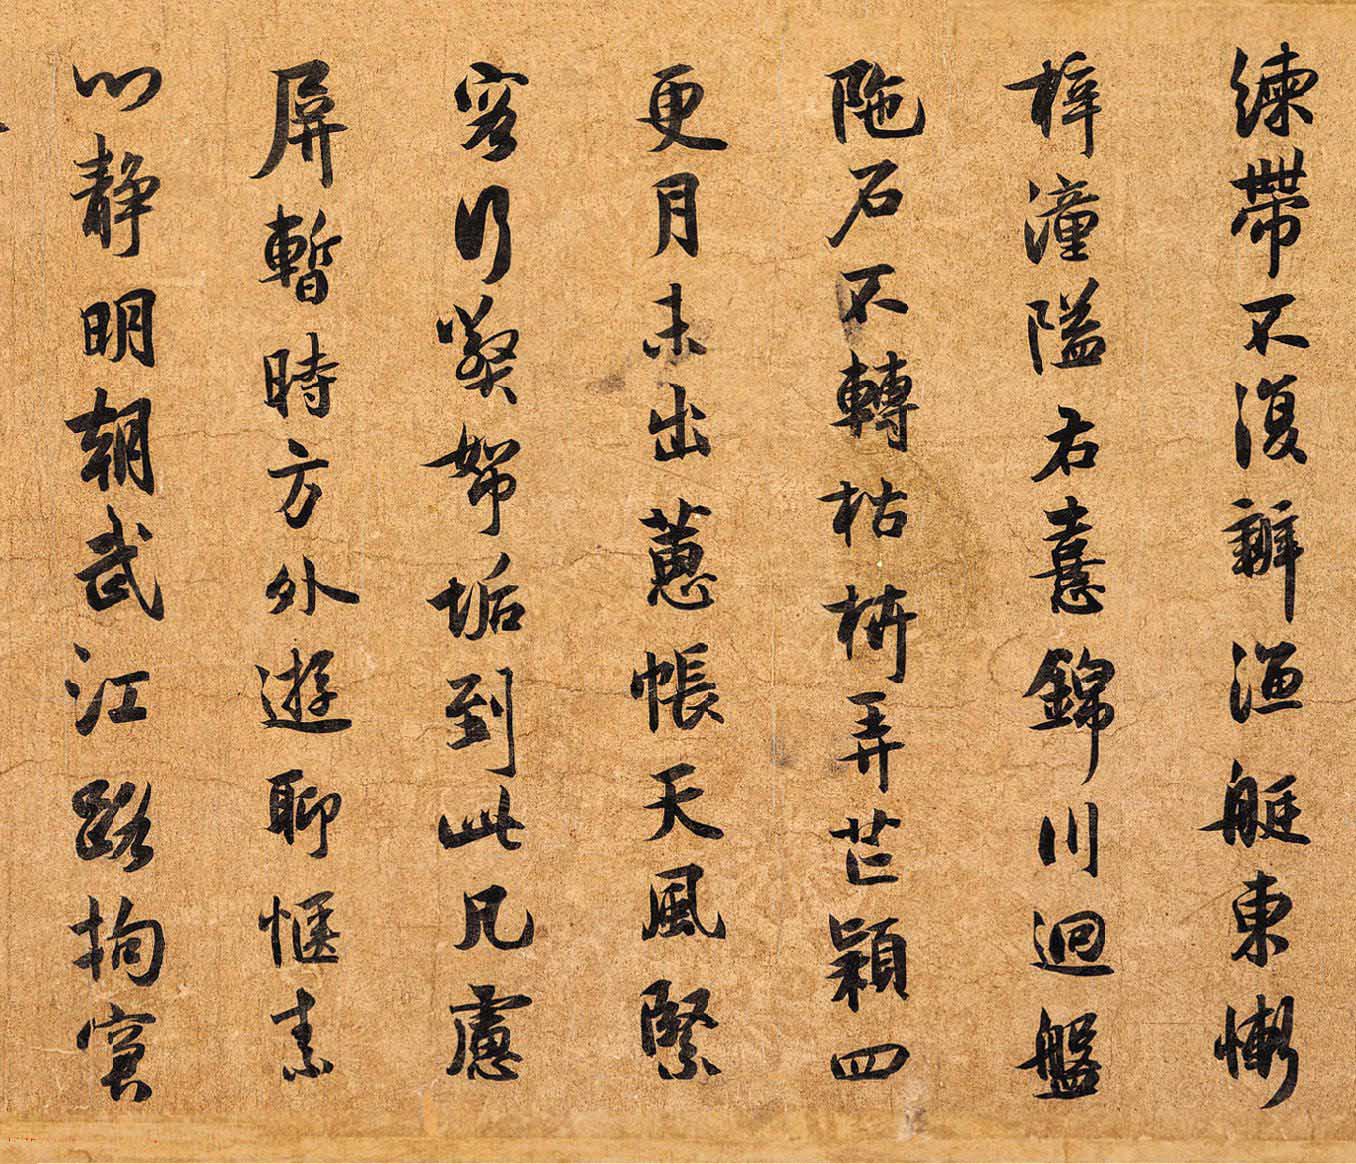 練帶不復辨漁艇東慚
梓潼隘右憙錦川迴盤
陁石不轉枯栟弄芒穎四
更月未出蕙帳天風緊
客行帑垢到此凡慮
屏暫時方外遊聊愜素
心靜明朝武江路拘窘